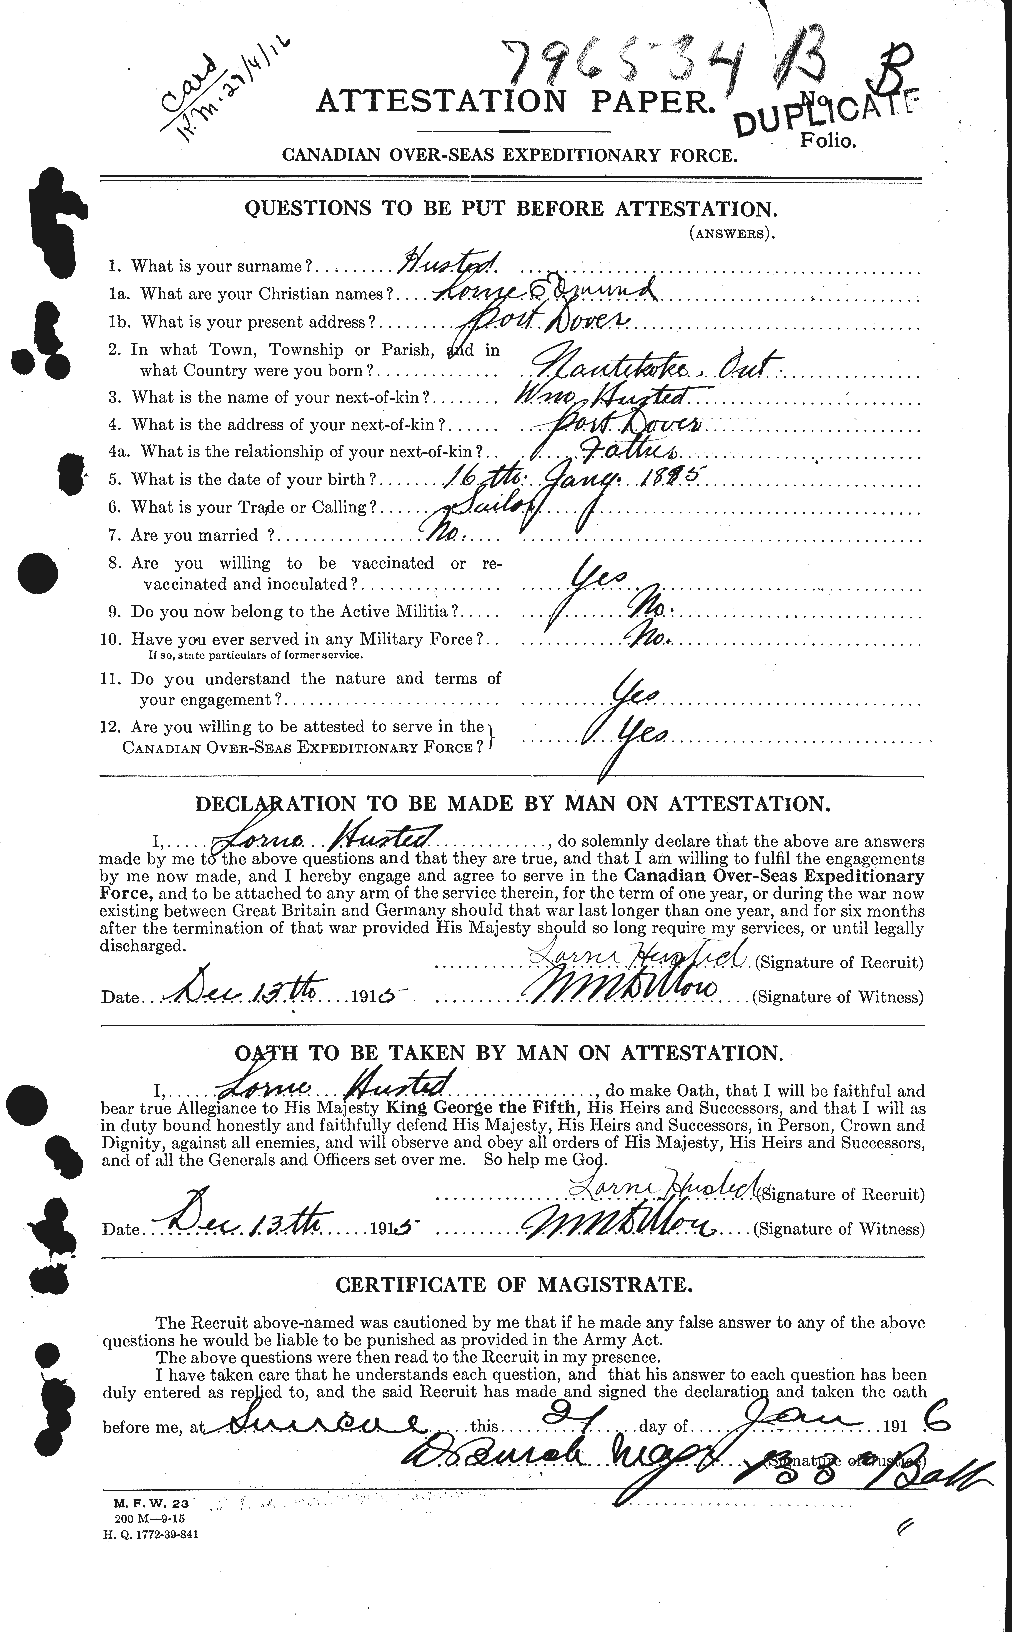 Card
K.M. 27/4/16
796534 B B
ATTESTATION PAPER. No.
DUPLICATE
Folio.
CANADIAN OVER-SEAS EXPEDITIONARY FORCE.
QUESTIONS TO BE PUT BEFORE ATTESTATION.
(ANSWERS).
1. What is your surname?......... Husted.
1a. What are your Christian names?.... Lorne Edmund
1b. What is your present address?........ Port Dover
2. In what Town, Township or Parish, and in
what Country were you born?.............. Nantikoke. Ont.
3. What is the name of your next-of-kin?........ Wm Husted
4. What is the address of your next-of-kin?...... Port Dover
4a. What is the relationship of your next-of-kin?.. Father
5. What is the date of your birth?........ 16th. Jany. 1895
6. What is your Trade or Calling?........ Sailor
7. Are you married ?................ No.
8. Are you willing to be vaccinated or re-
vaccinated and inoculated?................ Yes
9. Do you now belong to the Active Militia?..... No.
10. Have you ever served in any Military Force?.. No.
If so, state particulars of former service.
11. Do you understand the nature and terms of
your engagement?........................ Yes
12. Are you willing to be attested to serve in the
CANADIAN OVER-SEAS EXPEDITIONARY FORCE? Yes
DECLARATION TO BE MADE BY MAN ON ATTESTATION.
I,..... Lorne Husted ............, do solemnly declare that the above are answers
made by me to the above questions and that they are true, and that I am willing to fulfil the engagements
by me now made, and I hereby engage and agree to serve in the Canadian Over-Seas Expeditionary
Force, and to be attached to any arm of the service therein, for the term of one year, or during the war now
existing between Great Britain and Germany should that war last longer than one year, and for six months
after the termination of that war provided His Majesty should so long require my services, or until legally
discharged.
Lorne Husted (Signature of Recruit)
Date... Dec 13th ....1915 (Signature of Witness)
OATH TO BE TAKEN BY MAN ON ATTESTATION.
I,...... Lorne Husted .................., do make Oath, that I will be faithful and
bear true Allegiance to His Majesty King George the Fifth, His Heirs and Successors, and that I will as
in duty bound honestly and faithfully defend His Majesty, His Heirs and Successors, in Person, Crown and
Dignity, against all enemies, and will observe and obey all orders of His Majesty, His Heirs and Successors,
and of all the Generals and Officers set over me. So help me God.
Lorne Husted (Signature of Recruit)
Date.. Dec 13th ......1915 (Signature of Witness)
CERTIFICATE OF MAGISTRATE.
The Recruit above-named was cautioned by me that if he made any false answer to any of the above
questions he would be liable to be punished as provided in the Army Act.
The above questions were then read to the Recruit in my presence.
I have taken care that he understands each question, and that his answer to each question has been
duly entered as replied to, and the said Recruit has made and signed the declaration and taken the oath
before me, at Simcoe ......this.... 21 ....day of.... Jan ....1916
(Signature of Justice) 133rd Batt
M. F. W. 23
200 M—9-15
H. Q. 1772-39-841